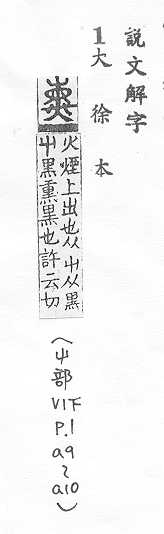 説文解字
1大徐本
火煙上出也从屮从黑
屮黑熏黑也許云切
(屮部
V1下
P.1
a9
~
a10)